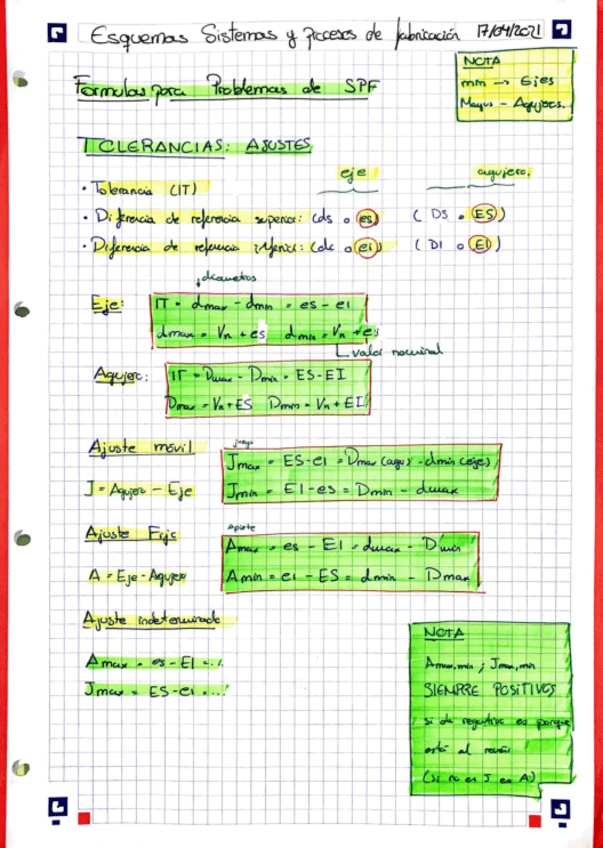 Esquemas Sistemas y procesos de fabricación 17/04/2021
NOTA
min → Ejes
Mayus - Agujeros.
Formulas para Problemas de SPF
TOLERANCIAS: AJUSTES
eje
agujero.
• Tolerancia (IT)
• Diferencia de referencia superior: (ds o es) ( DS o ES )
• Diferencia de referencia inferior: (di o ei) ( DI o EI )
diametros
Eje: IT = dmax - dmin = es - ei
dmax = Vn + es dmin = Vn + ei
valor nominal
Agujero: IT = Dmax - Dmin = ES - EI
Dmax = Vn + ES Dmin = Vn + EI
Ajuste móvil
juego
Jmax = ES - ei = Dmax (aguj) - dmin (eje)
J = Agujero - Eje
Jmin = EI - es = Dmin - dmax
Ajuste Fijo
Apriete
Amax = es - EI = dmax - Dmin
A = Eje - Agujero
Amin = ei - ES = dmin - Dmax
Ajuste indeterminado
Amax = es - EI = ...
Jmax = ES - ei = ...
NOTA
Amax,min ; Jmax,min
SIEMPRE POSITIVOS
si da negativo es porque
está al revés
(si no es J es A)